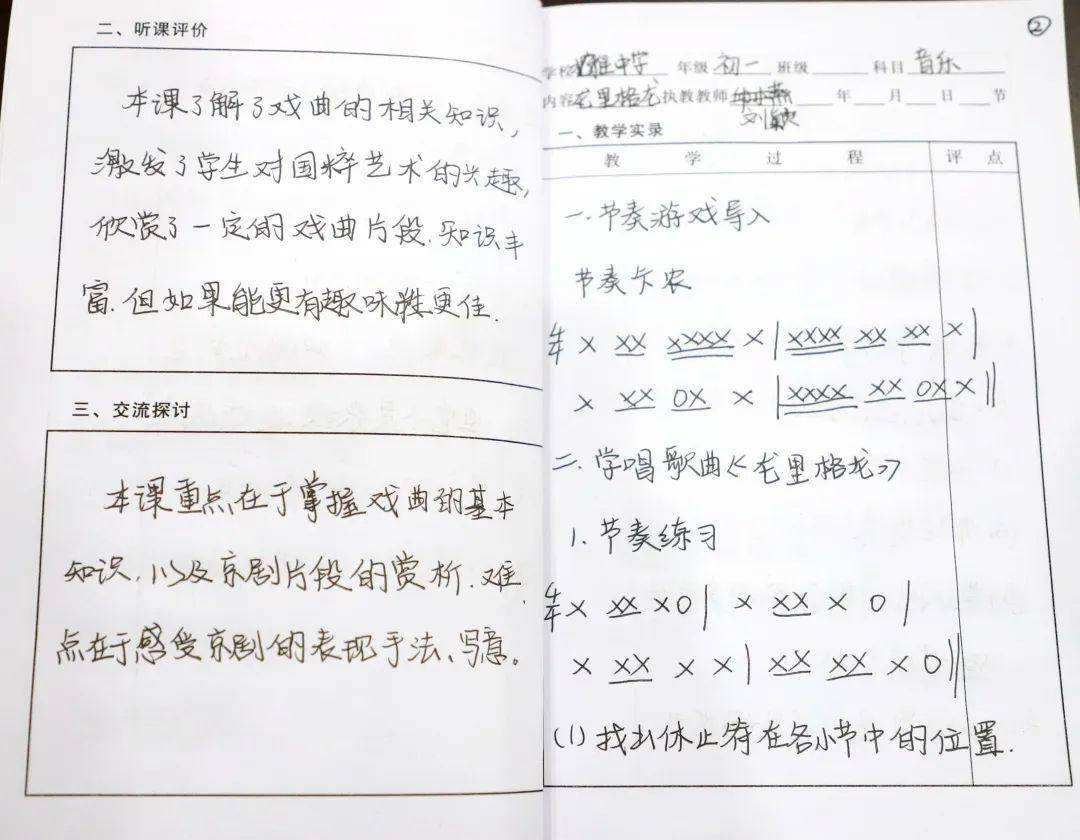 二、听课评价
本课了解了戏曲的相关知识,
激发了学生对国粹艺术的兴趣,
欣赏了一定的戏曲片段.知识丰
富.但如果能更有趣味性更佳.
三、交流探讨
本课重点在于掌握戏曲的基本
知识.以及京剧片段的赏析.难
点在于感受京剧的表现手法、写意。
②
学校 雅中学 年级 初一 班级 科目 音乐
内容 龙里格龙 执教教师 年 月 日 节
刘颖
一、教学实录
教 学 过 程 评 点
一.节奏游戏导入
节奏卡农
4/4 X XX XXXX X | XXXX XX XX X |
X XX 0X X | XXXX XX 0X X ||
二.学唱歌曲《龙里格龙》
1.节奏练习
4/4 X XX X 0 | X XX X 0 |
X XX X X | XX XX X 0 ||
(1)找出休止符在各小节中的位置.